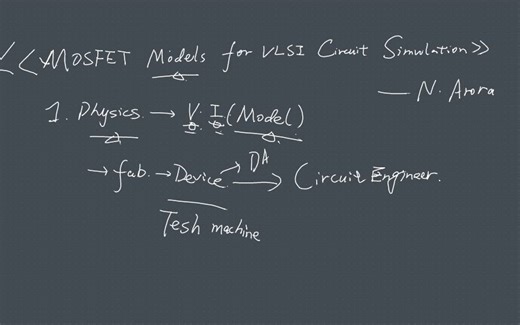 <<MOSFET Models for VLSI Circuit Simulation>>
— N. Arora
1. Physics → V. I (Model)
→ fab. → Device → DA → Circuit Engineer.
Tesh machine